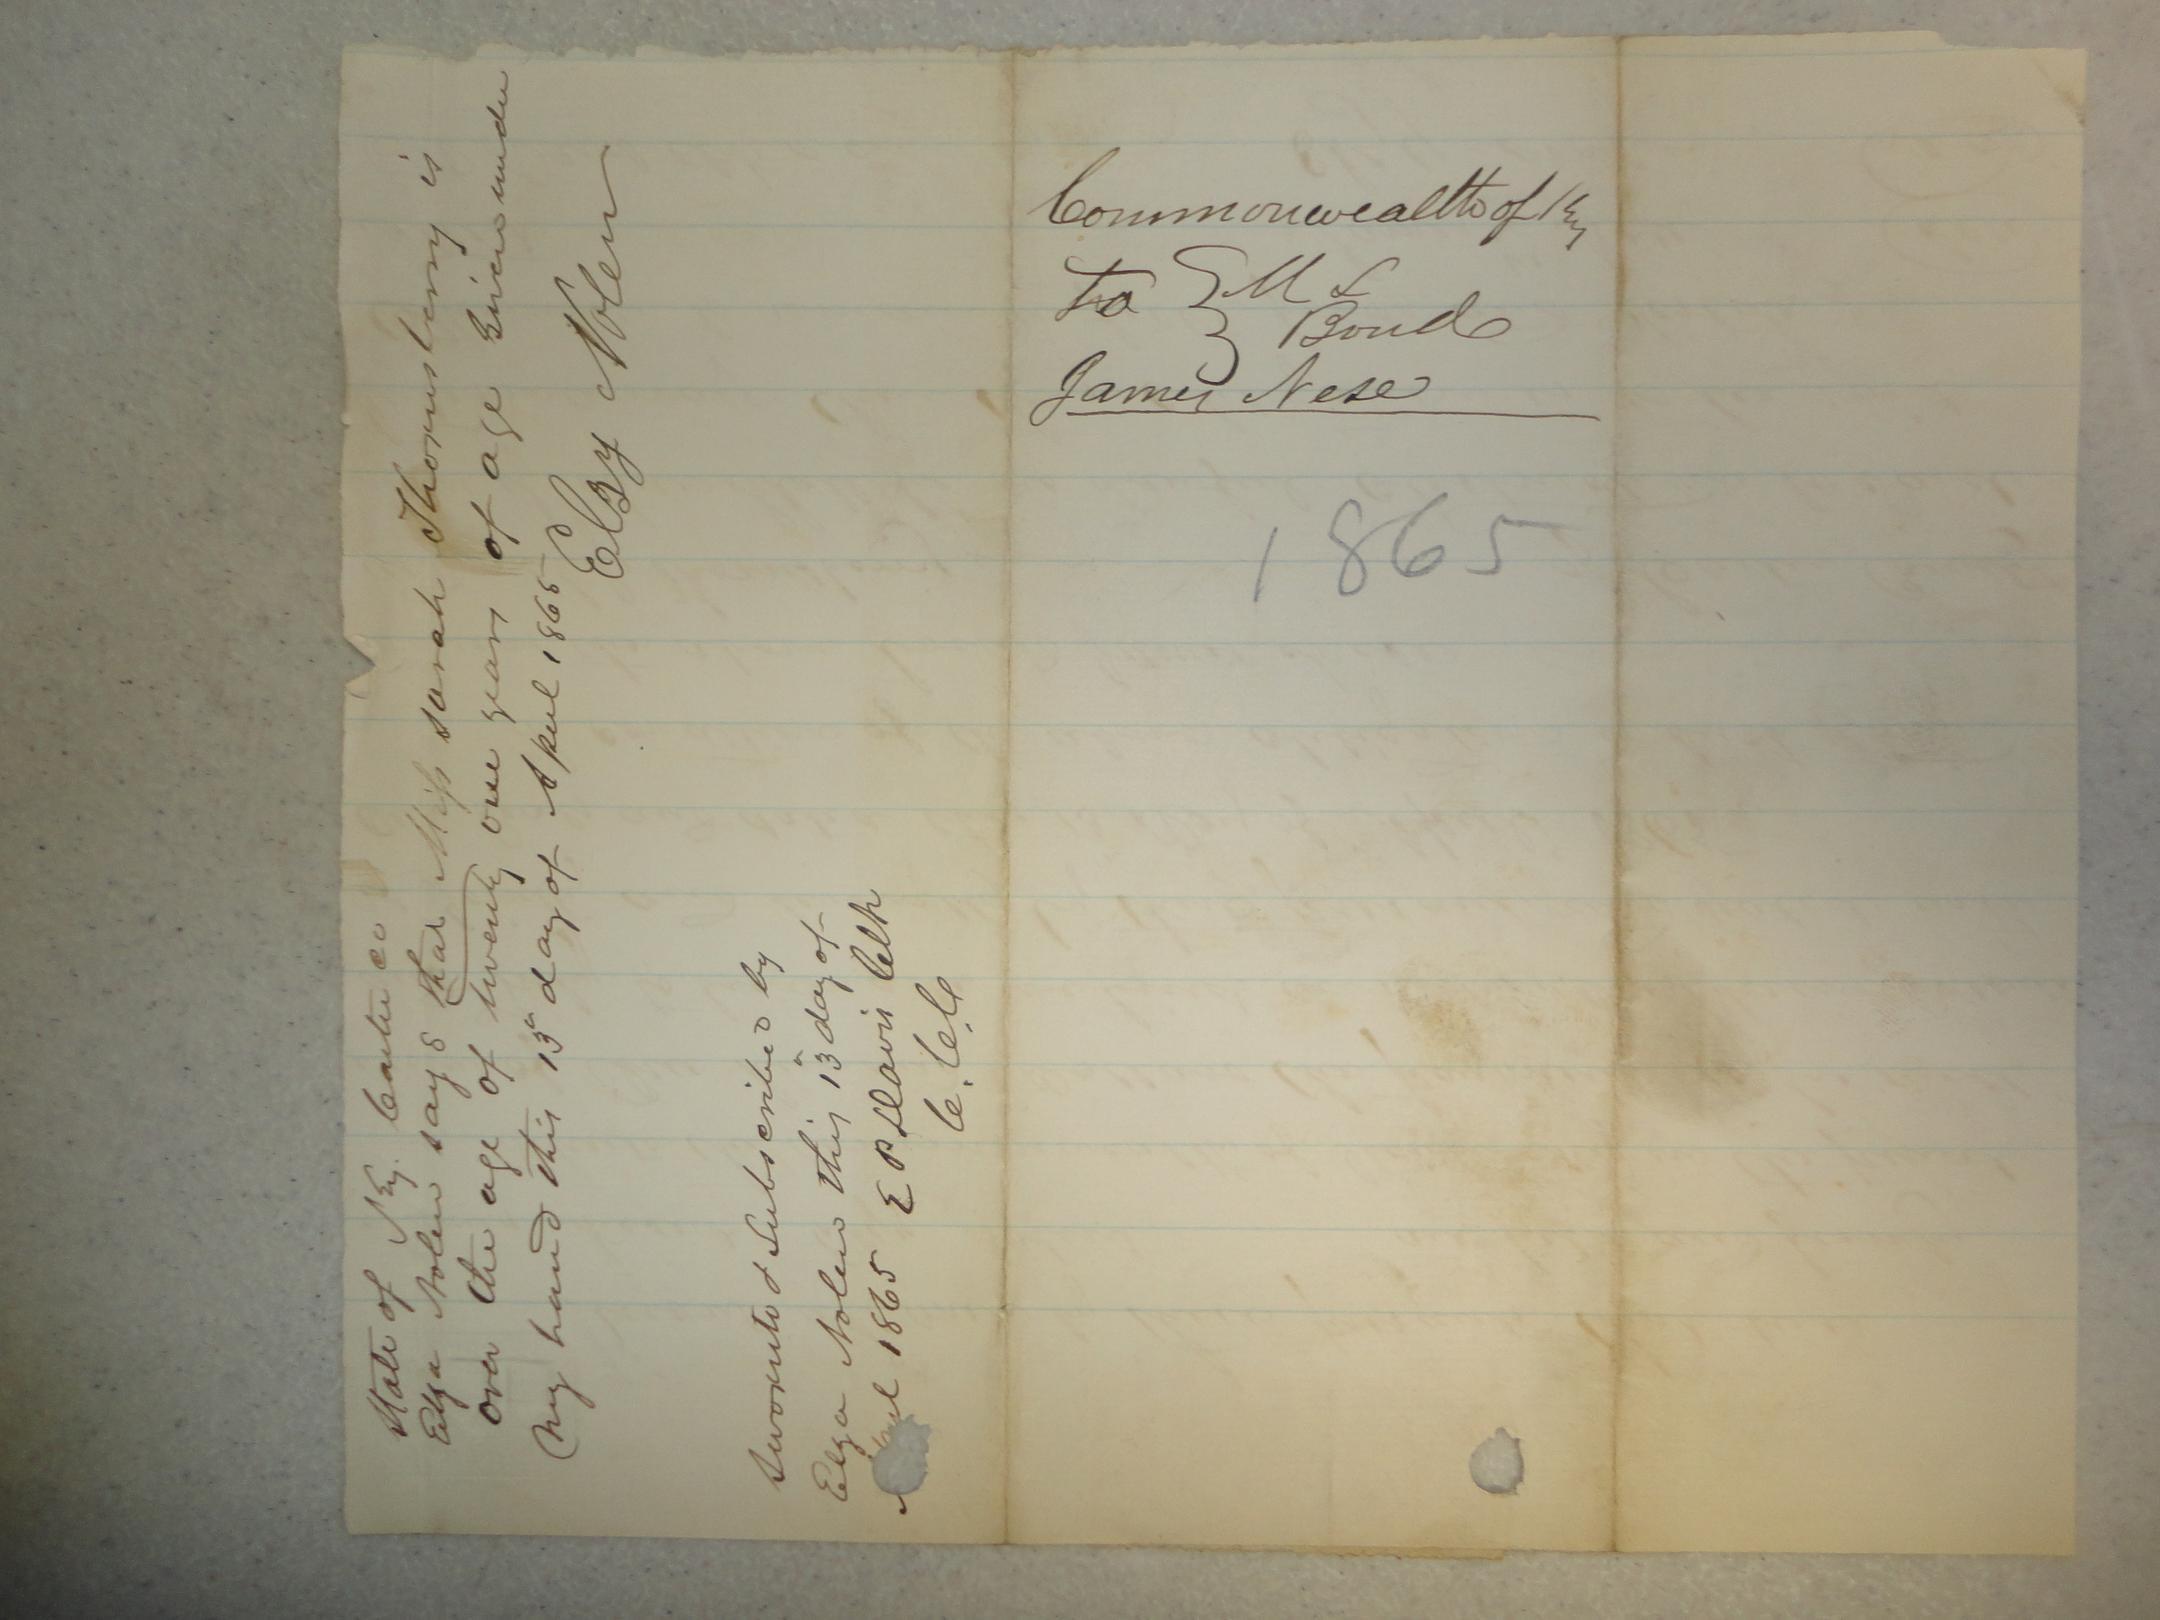 State of Ky. Carter co
Elza Nolen says that Miss Sarah Thornsberry is
over the age of twenty one years of age Given under
my hand this 13th day of April 1865
Elzy Nolen
Sworn to & Subscribed by
Elza Nolen this 13th day of
April 1865 E P Davis Clk
C.C.C
Commonwealth of Ky
To } M L
Bond
James Nese
1865